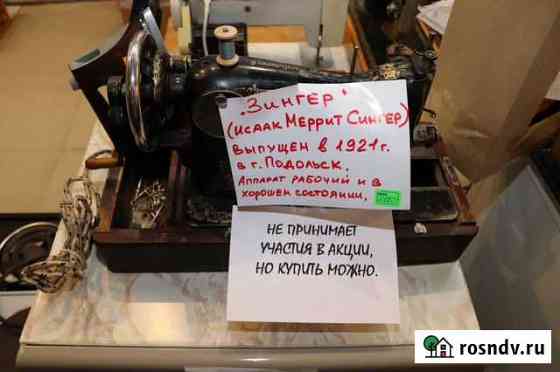 "Зингер"
(Исаак Меррит Сингер)
выпущен в 1921г.
в г. Подольск.
Аппарат рабочий и в
хорошем состоянии.
НЕ ПРИНИМАЕТ
УЧАСТИЯ В АКЦИИ,
НО КУПИТЬ МОЖНО.
rosndv.ru